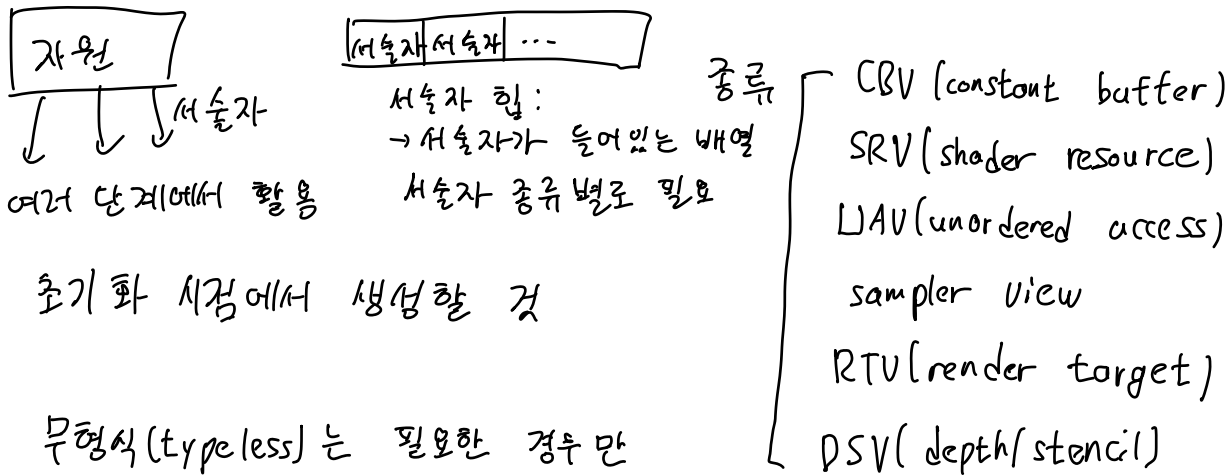 자원
서술자
여러 단계에서 활용
서술자 서술자 ...
서술자 힙:
→ 서술자가 들어있는 배열
서술자 종류별로 필요
초기화 시점에서 생성할 것
무형식(typeless)는 필요한 경우만
종류
CBV (constant buffer)
SRV (shader resource)
UAV (unordered access)
sampler view
RTV (render target)
DSV (depth/stencil)